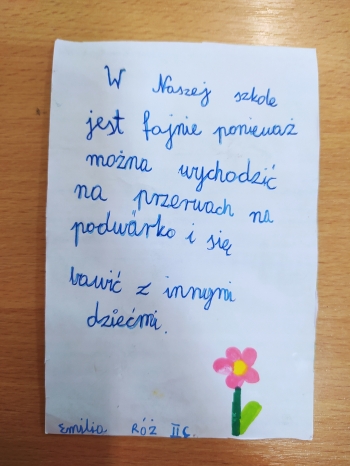 W Naszej szkole
jest fajnie ponieważ
można wychodzić
na przerwach na
podwárko i się
bawić z innymi
dziećmi.
Emilia RÓŻ II c.